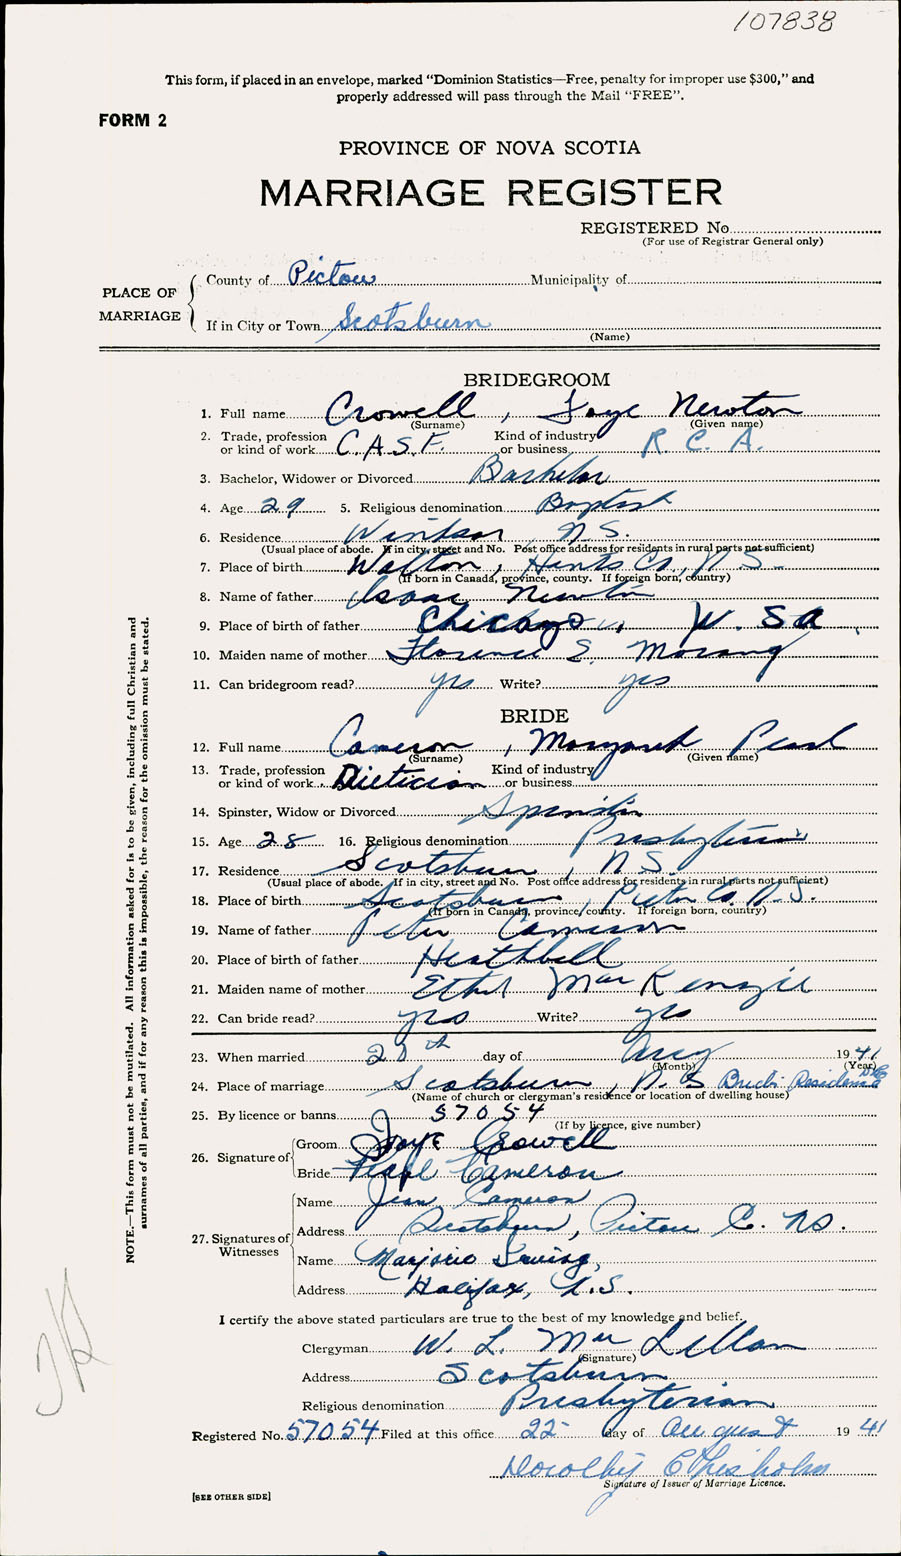 107838
This form, if placed in an envelope, marked “Dominion Statistics—Free, penalty for improper use $300,” and
properly addressed will pass through the Mail “FREE”.
FORM 2
PROVINCE OF NOVA SCOTIA
MARRIAGE REGISTER
REGISTERED No.
(For use of Registrar General only)
PLACE OF MARRIAGE
County of Pictou Municipality of
If in City or Town Scotsburn
(Name)
BRIDEGROOM
1. Full name Crowell, Faye Newton
(Surname) (Given name)
2. Trade, profession or kind of work C.A.S.F. Kind of industry or business R. C. A.
3. Bachelor, Widower or Divorced Bachelor
4. Age 29 5. Religious denomination Baptist
6. Residence Windsor, N.S.
(Usual place of abode. If in city, street and No. Post office address for residents in rural parts not sufficient)
7. Place of birth Walton, Hants Co., N.S.
(If born in Canada, province, county. If foreign born, country)
8. Name of father Isaac Newton
9. Place of birth of father Chicago
10. Maiden name of mother Florence E. Morang
11. Can bridegroom read? yes Write? yes
BRIDE
12. Full name Cameron, Margaret Pearl
(Surname) (Given name)
13. Trade, profession or kind of work Dietician Kind of industry or business
14. Spinster, Widow or Divorced Spinster
15. Age 28 16. Religious denomination Presbyterian
17. Residence Scotsburn, N.S.
(Usual place of abode. If in city, street and No. Post office address for residents in rural parts not sufficient)
18. Place of birth Scotsburn, Pictou Co. N.S.
(If born in Canada, province, county. If foreign born, country)
19. Name of father Peter Cameron
20. Place of birth of father Heathbell
21. Maiden name of mother Ethel MacKenzie
22. Can bride read? yes Write? yes
23. When married day of Aug 1941
(Month) (Year)
24. Place of marriage Scotsburn, N.S. Bride's Residence
(Name of church or clergyman's residence or location of dwelling house)
25. By licence or banns 57054
(If by licence, give number)
26. Signature of
Groom Faye Crowell
Bride Pearl Cameron
27. Signatures of Witnesses
Name Jean Cameron
Address Scotsburn, Pictou C. N.S.
Name Marjorie Irving,
Address Halifax, N.S.
I certify the above stated particulars are true to the best of my knowledge and belief.
Clergyman W. L. MacLellan
(Signature)
Address Scotsburn
Religious denomination Presbyterian
Registered No. 57054 Filed at this office 22 day of August 1941
Dorothy Chisholm
Signature of Issuer of Marriage Licence.
[SEE OTHER SIDE]
NOTE.—This form must not be mutilated. All information asked for is to be given, including full Christian and
surnames of all parties, and if for any reason this is impossible, the reason for the omission must be stated.